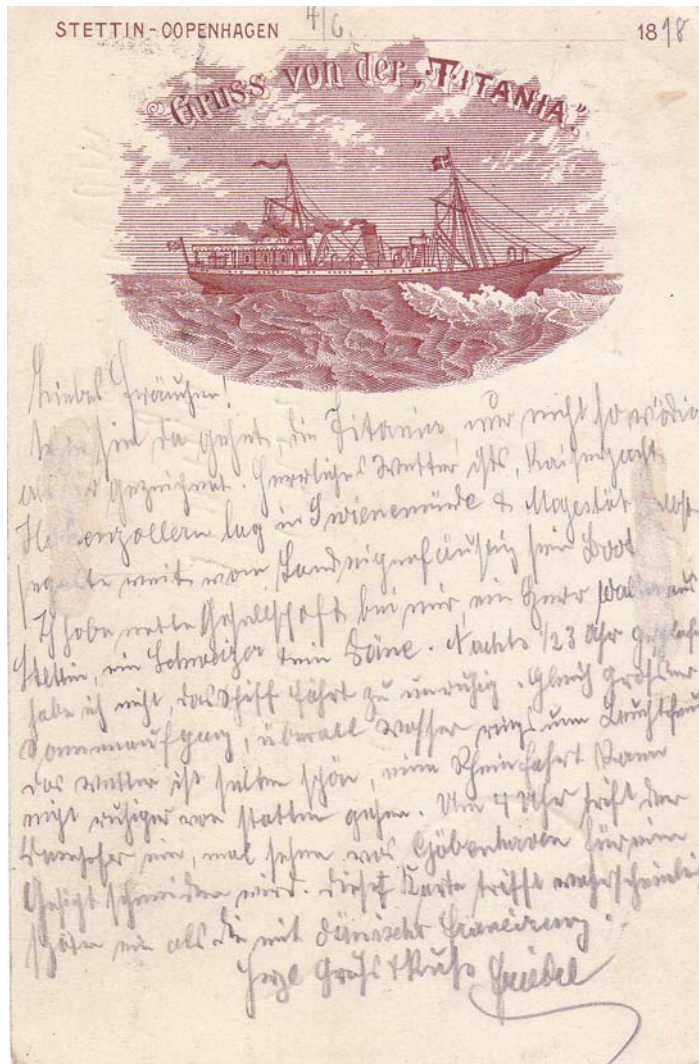 STETTIN-COPENHAGEN 4/6. 1898
Gruss von der „TITANIA."
Liebes Frauchen!
da geht die Titania, nur nicht so
gezeichnet. Herrliches Wetter ists, Kaiseryacht
Hohenzollern lag in Swienemünde & Magestät selbst
segelte weit vom Land eigenhändig sein Boot
Ich habe nette Gesellschaft bei mir, ein Herr aus
Stettin, ein Schweizer & ein Däne. Nachts 1/23 Uhr geschlafen
habe ich nicht, das Schiff fährt zu unruhig. Gleich
Sonnenaufgang, überall Wasser rings um
das Wetter ist selten schön, eine Rheinfahrt kann
nicht ruhiger von statten gehen. Um 4 Uhr trift der
ein, mal sehen was für ein
Gesicht schneiden wird. Diese Karte trifft wahrscheinlich
später ein als die mit dänischer
Herzl Gruss & Kuss